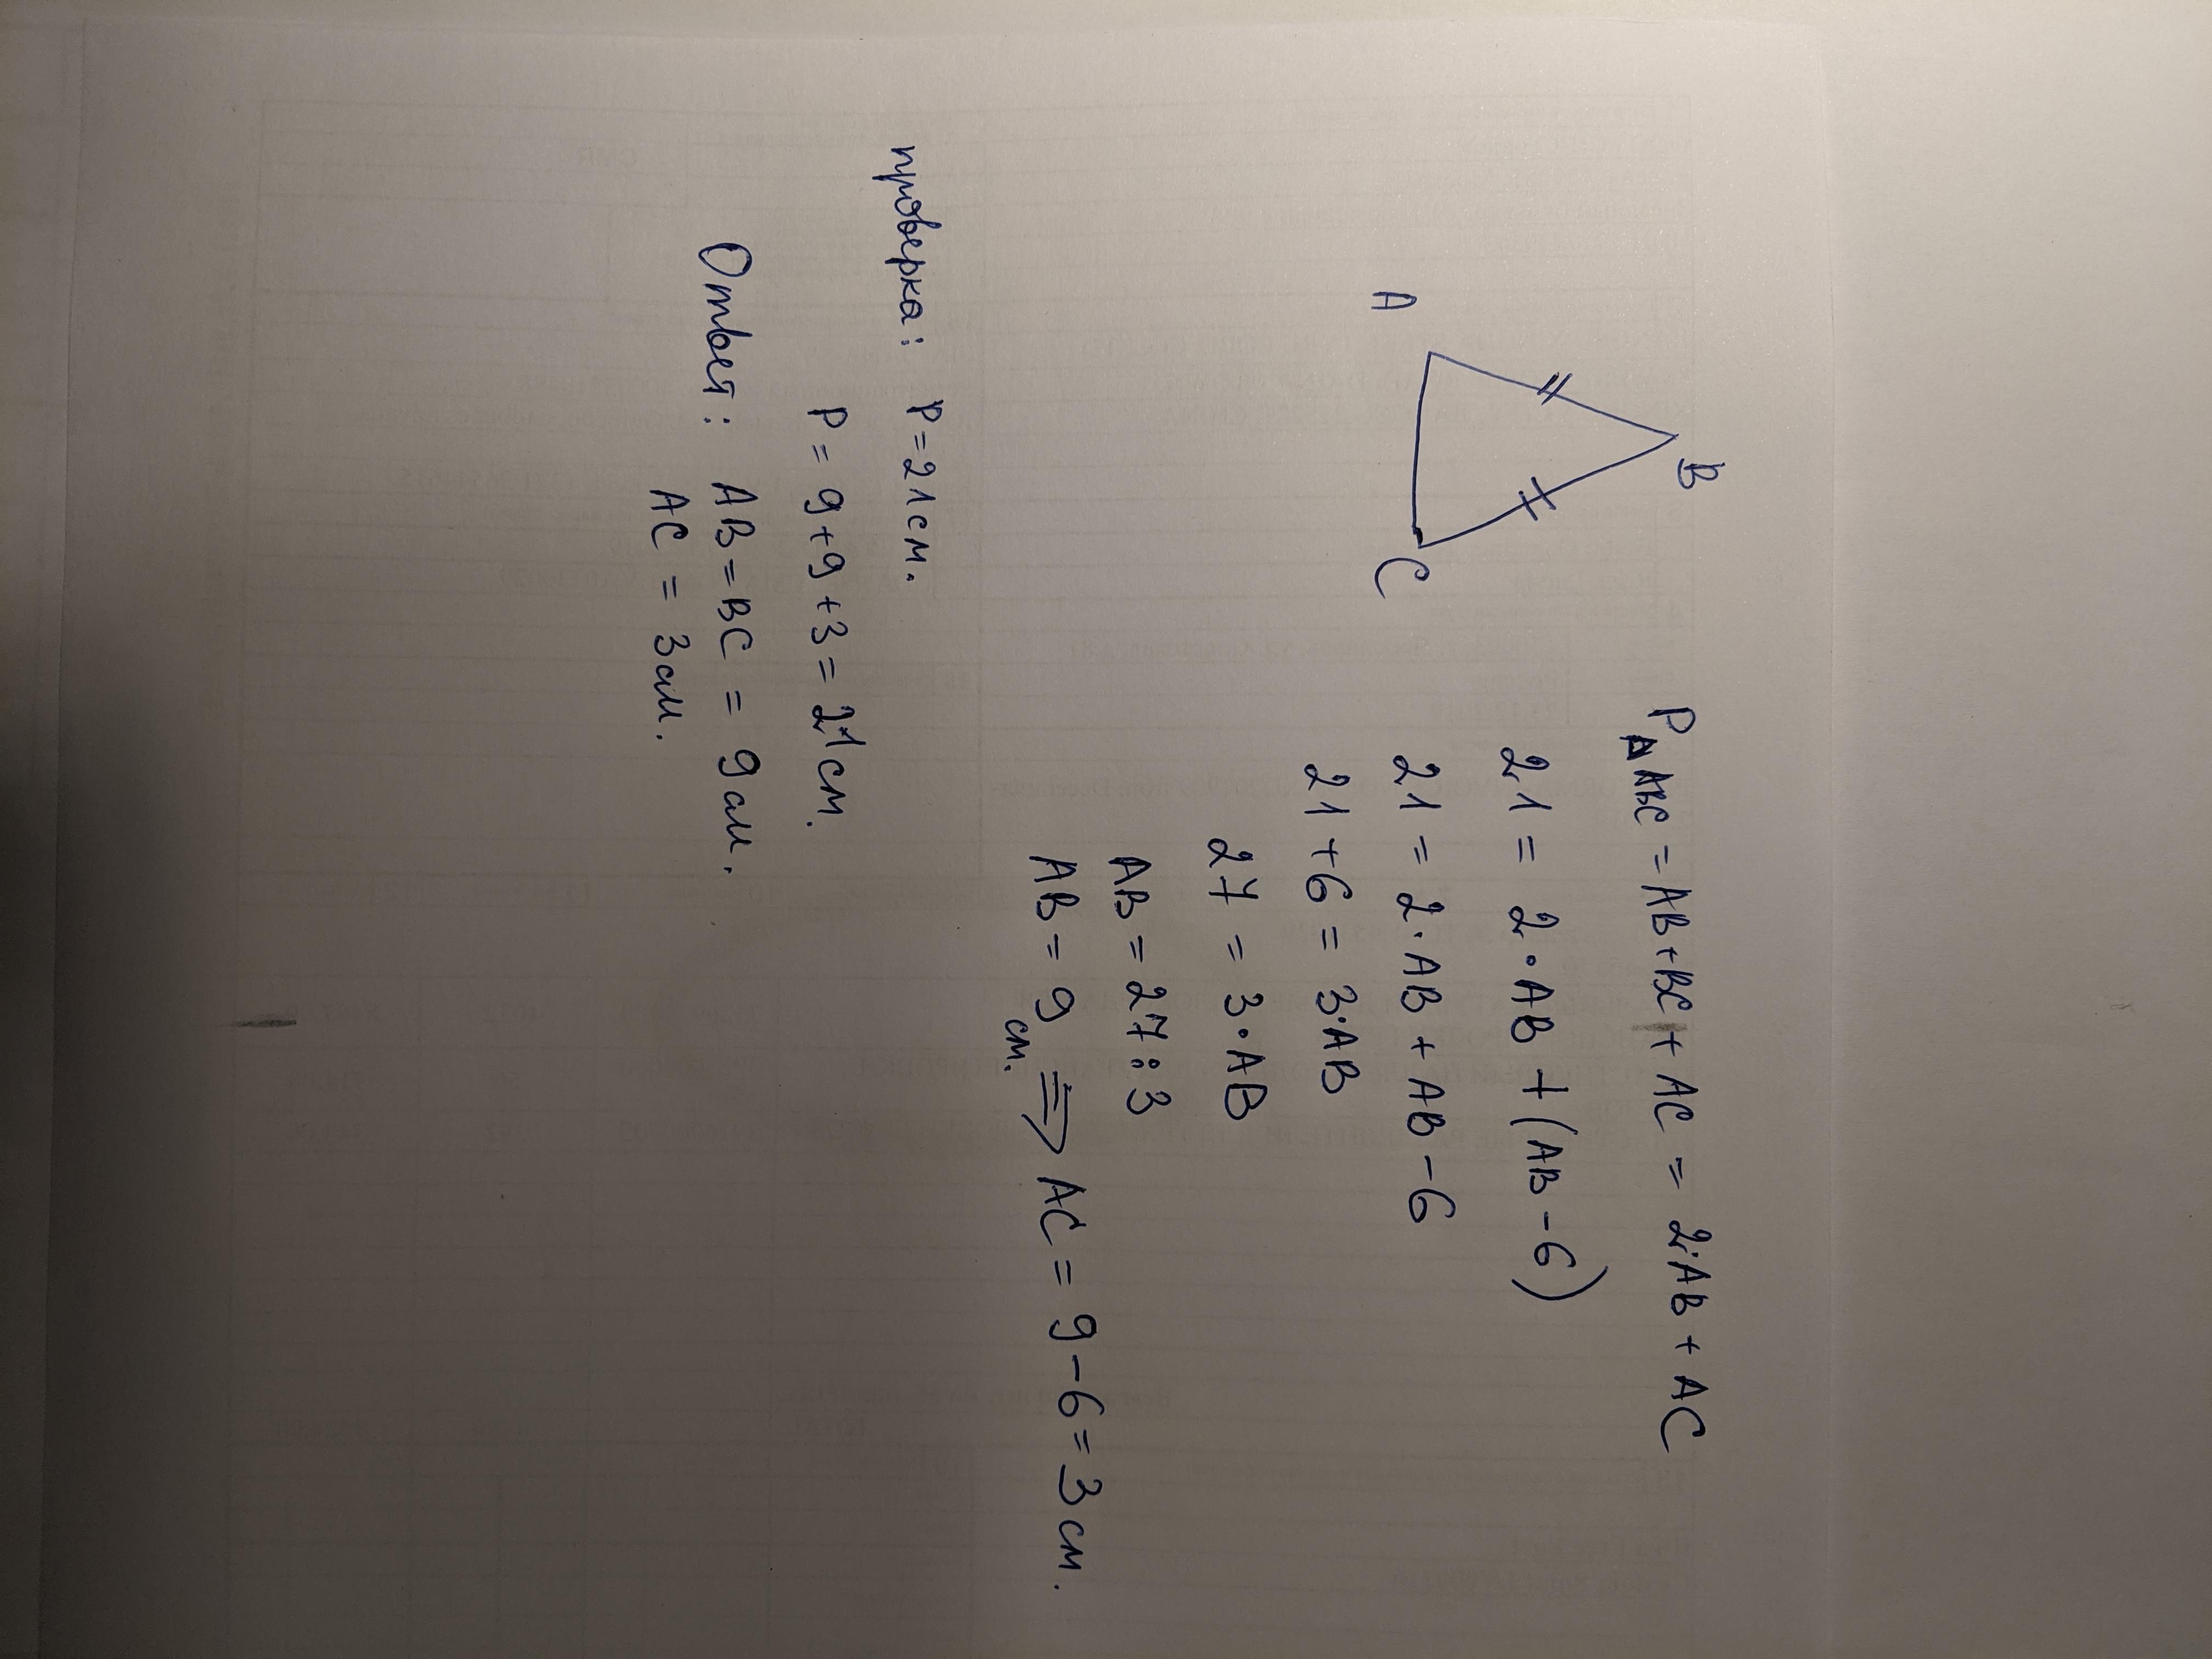 B
A
C
P△ABC = AB+BC+ AC = 2·AB + AC
21 = 2·AB + (AB-6)
21 = 2·AB + AB-6
21+6 = 3·AB
27 = 3·AB
AB = 27:3
AB = 9 см. ⟹ AC = 9-6=3 см.
проверка: P=21см.
P = 9+9+3=21см.
Ответ: AB=BC = 9см.
AC = 3см.